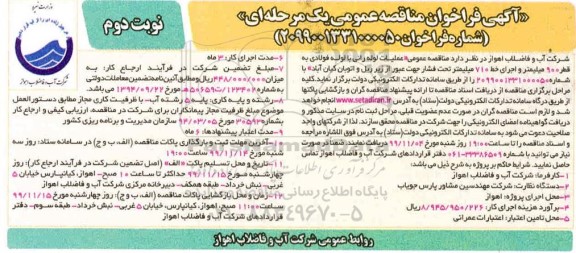 «آگهی فراخوان مناقصه عمومی یک مرحله ای»
(شماره فراخوان ۲۰۹۹۰۰۱۳۳۱۰۰۰۰۵۰)
نوبت دوم
شرکت آب و فاضلاب اهواز
شرکت آب و فاضلاب اهواز در نظر دارد مناقصه عمومی «عملیات لوله رانی با لوله فولادی به
قطر ۹۰۰ میلیمتر و اجرای خط ۷۱۰ میلیمتر تحت فشار جهت عبور از زیر ریل و اتوبان کیان آباد» با
شماره ۲۰۹۹۰۰۱۳۳۱۰۰۰۰۵۰ را از طریق سامانه تدارکات الکترونیکی دولت برگزار نماید کلیه
مراحل برگزاری مناقصه از دریافت اسناد مناقصه تا ارائه پیشنهاد مناقصه گران و بازگشایی پاکتها
از طریق درگاه سامانه تدارکات الکترونیکی دولت (ستاد) به آدرس www.setadiran.ir انجام خواهد
شد و لازم است مناقصه گران در صورت عدم عضویت قبلی، مراحل ثبت نام در سایت مذکور و
دریافت گواهینامه امضای الکترونیکی را جهت شرکت در مناقصه محقق سازند. لذا از شرکتهای واجد
صلاحیت دعوت می شود به سامانه تدارکات الکترونیکی دولت (ستاد) به آدرس فوق الاشاره مراجعه
و اسناد مناقصه را تا ساعت ۱۹:۰۰ روز شنبه مورخ ۹۹/۱۱/۰۴ دریافت نمایند.
نیاز می توانید با شماره ۳۳۳۸۴۵۰۹-۰۶۱ دفتر قراردادهای شرکت آب و فاضلاب اهواز تماس
حاصل نمایید. شرایط حاکم بر پروژه به شرح ذیل می باشد:
۱-کارفرما: شرکت آب و فاضلاب اهواز
۲-دستگاه نظارت: شرکت مهندسین مشاور پارس جویاب
۳-محل اجرای پروژه: اهواز
۴-برآورد هزینه اجرای کار: ۸/۹۴۵/۹۵۰/۲۲۶ ریال
۵-محل تامین اعتبار: اعتبارات عمرانی
۶-مدت اجرای کار: ۳ ماه
۷-مبلغ تضمین شرکت در فرآیند ارجاع کار: به
مبلغ ۴۴۸/۰۰۰/۰۰۰ ریال مطابق آئین نامه تضمین معاملات دولتی
به شماره ۱۲۳۴۰۲/ت۵۰۶۵۹ه مورخ ۱۳۹۴/۰۹/۲۲ می باشد.
۸-رشته و پایه کاری: پایه ۵ رشته آب، با ظرفیت کاری مجاز مطابق دستورالعمل
موضوع ظرفیت مجاز پیمانکاران برای شرکت در مناقصه، ارزیابی کیفی و ارجاع کار
مورخ ۹۴/۰۳/۲۵ سازمان مدیریت و برنامه ریزی کشور
۹-مدت اعتبار پیشنهادها: ۶ ماه
۱۰-آخرین مهلت ثبت و بارگذاری پاکات مناقصه (الف، ب و ج) در سامانه ستاد: روز سه
شنبه مورخ ۹۹/۱۱/۱۴ ساعت ۱۹:۰۰
۱۱-تاریخ و محل تسلیم پاکت «الف» (اصل تضمین شرکت در فرآیند ارجاع کار): روز
چهارشنبه مورخ ۹۹/۱۱/۱۵ حداکثر تا ساعت ۱۰ صبح، اهواز، کیانپارس، خیابان ۵
غربی، نبش خرداد، طبقه همکف، دبیرخانه مرکزی شرکت آب و فاضلاب اهواز
۱۲-زمان و محل بازگشایی پاکات مناقصه (الف، ب و ج): روز چهارشنبه مورخ ۹۹/۱۱/۱۵
ساعت ۱۱:۰۰ صبح، اهواز، کیانپارس، خیابان ۵ غربی، نبش خرداد، طبقه سوم، دفتر
قراردادهای شرکت آب و فاضلاب اهواز
روابط عمومی شرکت آب و فاضلاب اهواز